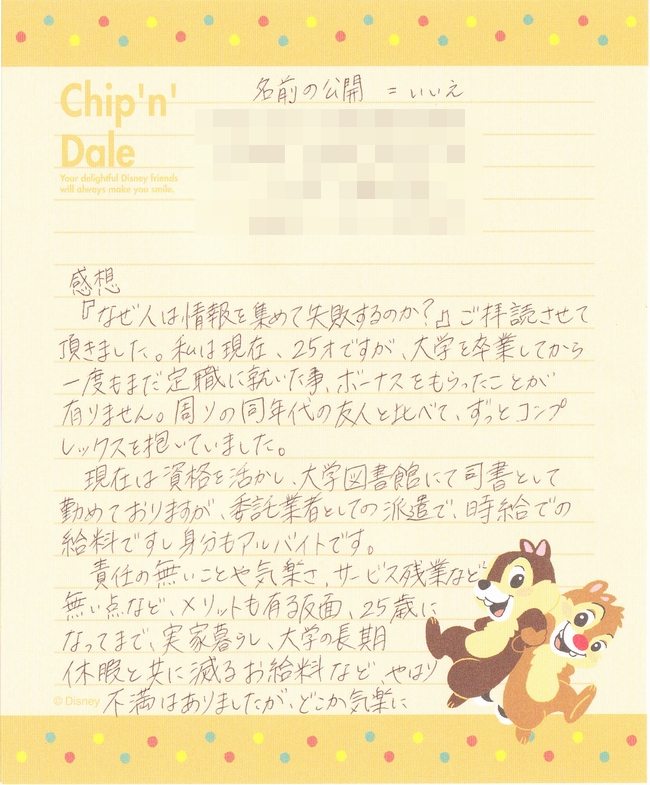 名前の公開 = いいえ
Chip'n'
Dale
Your delightful Disney friends
will always make you smile.
感想
『なぜ人は情報を集めて失敗するのか?』ご拝読させて
頂きました。私は現在、25才ですが、大学を卒業してから
一度もまだ定職に就いた事、ボーナスをもらったことが
有りません。周りの同年代の友人と比べて、ずっとコンプ
レックスを抱いていました。
現在は資格を活かし、大学図書館にて司書として
勤めておりますが、委託業者としての派遣で、時給での
給料ですし身分もアルバイトです。
責任の無いことや気楽さ、サービス残業など
無い点など、メリットも有る反面、25歳に
なってまで、実家暮らし、大学の長期
休暇と共に減るお給料など、やはり
不満はありましたが、どこか気楽に
© Disney